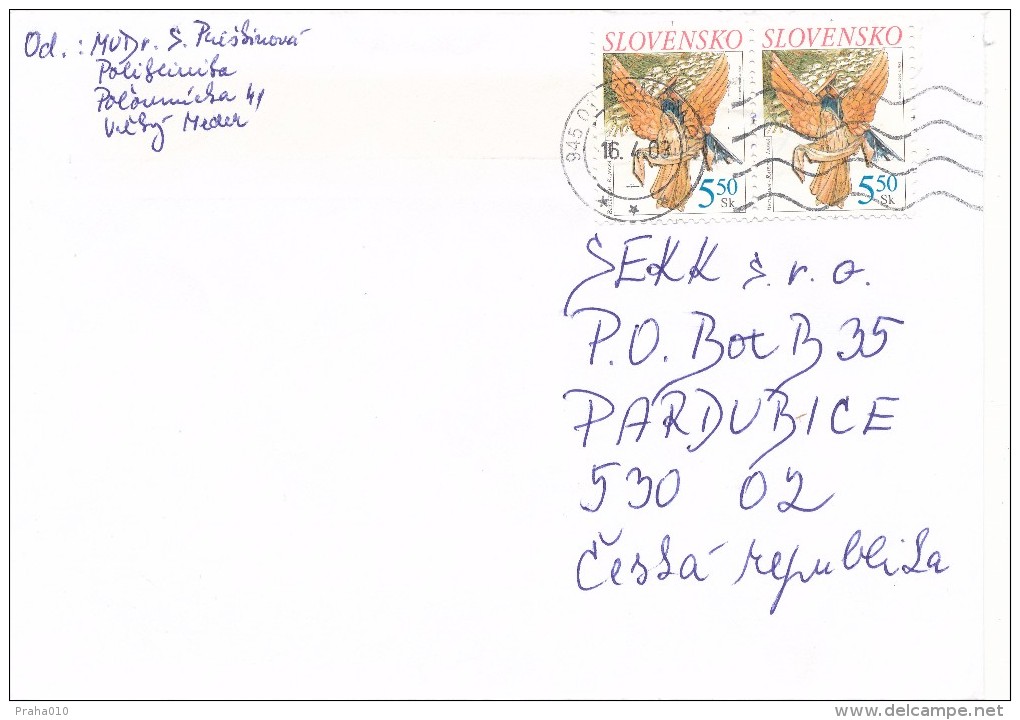 Od.: MUDr. S.
Poliklinika
41
Veľký Meder
SLOVENSKO SLOVENSKO
945 01
16. 4. 03
5 50 Sk 5 50 Sk
SEKK s. r. o.
P.O. Box B 35
PARDUBICE
530 02
Česká republika
Praha010
delcampe.net